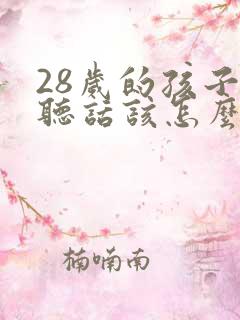 28歲的孩子
聽話該怎麼
楠喃南